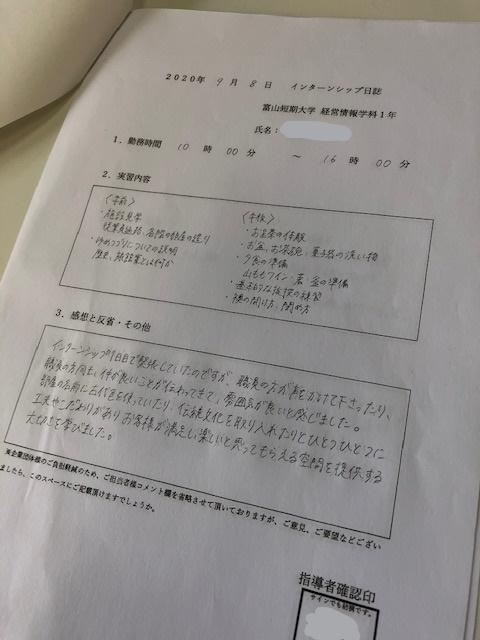 2020年 9月 8日 インターンシップ日誌
富山短期大学 経営情報学科1年
氏名：
1．勤務時間 10 時 00 分 ～ 16 時 00 分
2．実習内容
〈午前〉
・施設見学
従業員通路、各階の部屋の造り
・ゆめつづりについての説明
歴史、旅館業とは何か
〈午後〉
・お抹茶の体験
・お盆、お茶碗、菓子器の洗い物
・夕食の準備
山ももワイン・蓋・釜の準備
・基本的な接待の練習
・襖の開け方、閉め方
3．感想と反省・その他
インターンシップ1日目で緊張していたのですが、職員の方が声をかけて下さったり、
職員の方同士、仲が良いことが伝わってきて、雰囲気が良いと感じました。
部屋の名前に古代色を使っていたり、伝統文化を取り入れたりとひとつひとつに
工夫やこだわりがありお客様が満足し楽しいと思ってもらえる空間を提供する
大切さを学びました。
※企業団体様のご負担軽減のため、ご担当者様コメント欄を省略させて頂いておりますが、ご意見、ご要望などござい
ましたら、このスペースにご記載頂けますでしょうか。
指導者確認印
サインでも結構です。